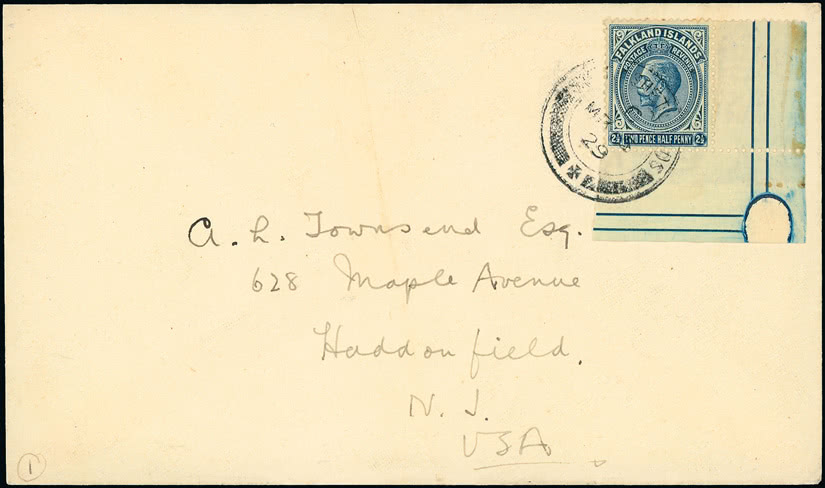 FALKLAND ISLANDS
POSTAGE REVENUE
2½ TWO PENCE HALF PENNY 2½
29
A. L. Townsend Esq.
628 Maple Avenue
Haddonfield.
N. J.
USA
1